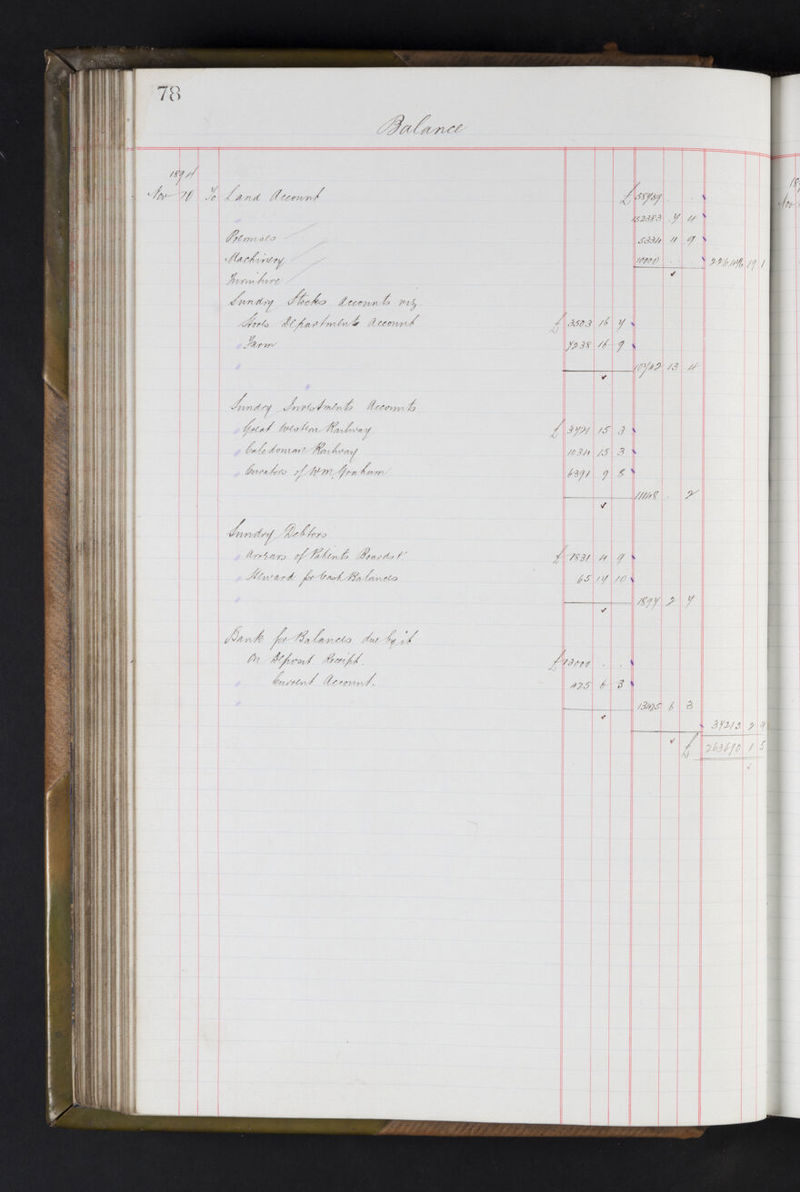 78
Balance
1894
Nov 10 To Land Account £ 58759 . .
" 152383 7 4
Premises 5334 11 9
Machinery 10000 . . 226476 19 1
Furniture
Sundry Stocks Accounts viz
Stores Departments Account £ 3503 16 7
" Farm 7238 16 9
" 10742 13 4
Sundry Investments Accounts
" Great Western Railway £ 3721 15 3
" Caledonian Railway 1034 15 3
" Curators of Wm. Graham 6391 9 8
11148 . 2
Sundry Debtors
" Arrears of Patients Boards &c £ 1831 4 9
" Steward for Cash Balances 65 17 10
" 1897 2 7
Bank for Balances due by it
On Deposit Receipt. £ 13000 . .
" Current Account. 425 6 3
" 13425 6 3
37213 2 4
£ 263690 1 5
189
Nov